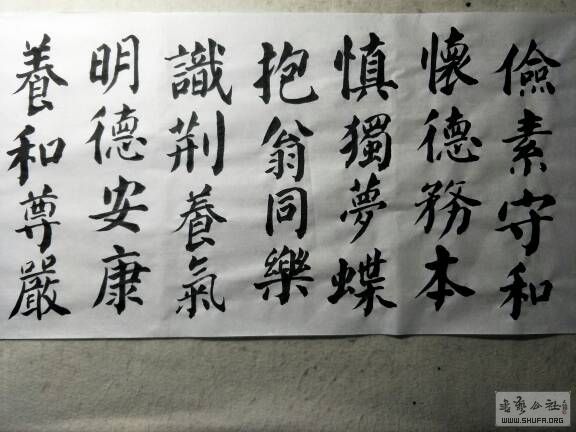 儉素守和
懷德務本
慎獨夢蝶
抱翁同樂
識荆養氣
明德安康
養和尊嚴
WWW.SHUFA.ORG